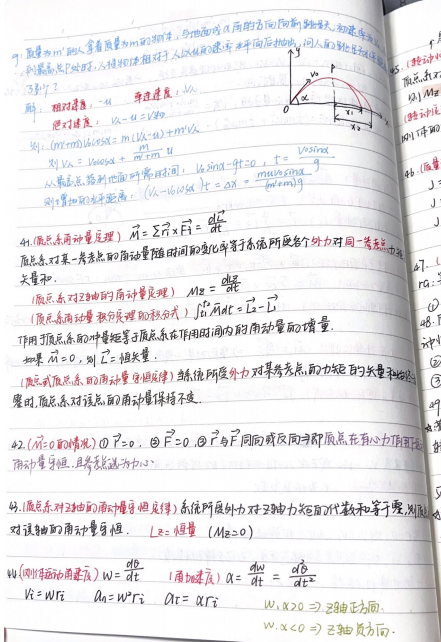 9. 质量为m'的人拿着质量为m的物体,与地面成α角的方向向前跳跃,初速率为
到最高点P处时,人将物体相对于人以u的速率水平向后抛出,问人的跳跃
多少?
解: 相对速度: -u 牵连速度: vA
绝对速度: vA-u=v物
则: (m'+m)v₀cosα=m(vA-u)+m'vA
则 vA = v₀cosα + m/(m'+m) u
从最高点落到地面所需时间: v₀sinα-gt=0, t = v₀sinα/g
则增加的水平距离: (vA-v₀cosα)t=Δx = muv₀sinα/(m'+m)g
y
v₀
P
α
O
x
x₁
x₂
41. (质点系角动量定理) M⃗=Σr⃗i×F⃗i = dL⃗/dt
质点系对某一考考点的角动量随时间的变化率等于系统所受各个外力对同一考考点力矩
矢量和.
(质点系对Z轴的角动量定理) Mz = dLz/dt
(质点系角动量积分定理的积分式) ∫t₁t₂ M⃗dt = L⃗₂-L⃗₁
作用于质点系的冲量矩等于质点系在作用时间内的角动量的增量.
如果 M⃗=0, 则 L⃗=恒矢量.
(质点或质点系的角动量守恒定律) 当系统所受外力对某考考点的力矩的矢量和
零时,质点系对该点的角动量保持不变.
42. (M⃗=0的情况) ① r⃗=0. ② F⃗=0. ③ r⃗与F⃗同向或反向,即质点在有心力作用下
角动量守恒,且考考点选为力心.
43. (质点系对Z轴的角动量守恒定律) 系统所受外力对Z轴力矩的代数和等于零,则
对该轴的角动量守恒. Lz=恒量 (Mz=0)
44. (刚体转动角速度) w= dθ/dt (角加速度) α = dw/dt = d²θ/dt²
vi=wri an=w²ri aτ=αri
w, α>0 => Z轴正方向.
w, α<0 => Z轴负方向.
45. (转动
质点系对
则 Mz
(转动定
46. (质量
J =
J =
47. (
①
48.
①
②
③
49